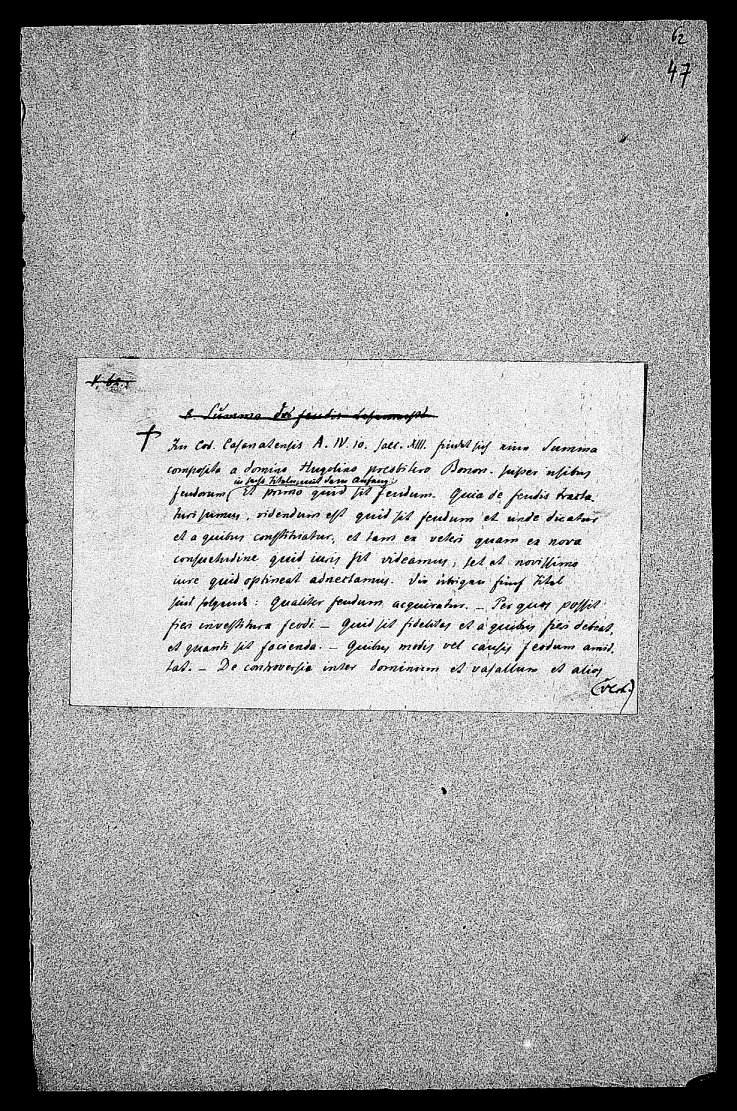 62
47
Summa de feudis
† In Cod. Casanatensis A. IV. 10. saec. XIII. findet sich eine Summa
composita a domino Hugolino presbitero Bonon. super usibus
in sechs Titeln, mit dem Anfang:
feudorum, et primo quid sit feudum. Quia de feudis tracta
turi sumus, videndum est quid sit feudum et unde dicatur
et a quibus constituatur, et tam ex veteri quam ex nova
consuetudine quid iuris sit videamus, set et novissimo
iure quid optineat adnectamus. Die übrigen fünf Titel
sind folgende: Qualiter feudum acquiratur. — Per quos possit
fieri investitura feodi — Quid sit fidelitas et a quibus fieri debeat,
et quando sit facienda. — Quibus modis vel causis feodum amit
tat. — De controversia inter dominum et vasallum et alios